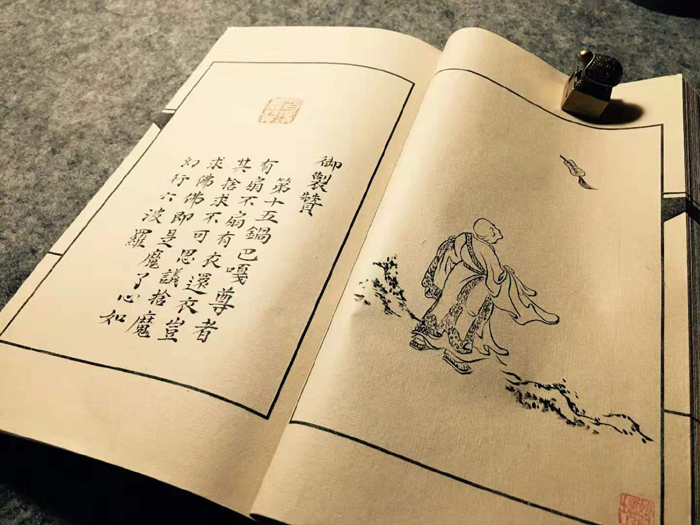 御製贊
第十五鍋巴嘎尊者
有扇不扇有衣還衣豈
其捨求不可思議捨魔
求佛佛即是魔了心如
幻行六波羅